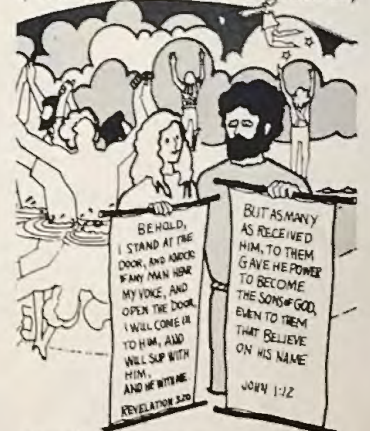 BEHOLD,
I STAND AT THE
DOOR, AND KNOCK
IF ANY MAN HEAR
MY VOICE, AND
OPEN THE DOOR,
I WILL COME IN
TO HIM, AND
WILL SUP WITH
HIM,
AND HE WITH ME
REVELATION 3:20
BUT AS MANY
AS RECEIVED
HIM, TO THEM
GAVE HE POWER
TO BECOME
THE SONS OF GOD,
EVEN TO THEM
THAT BELIEVE
ON HIS NAME
JOHN 1:12